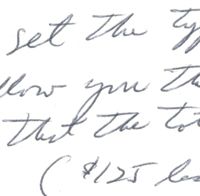 set the typ
llow you the
that the tot
( $125 les